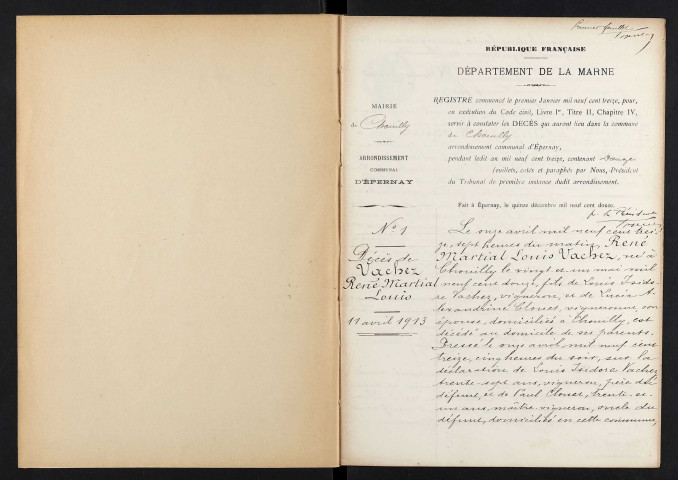 Premier feuillet
RÉPUBLIQUE FRANÇAISE
DÉPARTEMENT DE LA MARNE
MAIRIE
de Chouilly
ARRONDISSEMENT
COMMUNAL
D'ÉPERNAY
REGISTRE commencé le premier Janvier mil neuf cent treize, pour,
en exécution du Code civil, Livre Ier, Titre II, Chapitre IV,
servir à constater les DÉCÈS qui auront lieu dans la commune
de Chouilly
arrondissement communal d'Épernay,
pendant ledit an mil neuf cent treize, contenant douze
feuillets, cotés et paraphés par Nous, Président
du Tribunal de première instance dudit arrondissement.
Fait à Épernay, le quinze décembre mil neuf cent douze.
p. le Président
No 1
Décès de
Vachez
René Martial
Louis
11 avril 1913
Le onze avril mil neuf cent trei-
ze, sept heures du matin, René
Martial Louis Vachez, né à
Chouilly le vingt et un mai mil
neuf cent douze, fils de Louis Isido-
re Vachez, vigneron, et de Lucie A-
lexandrine Clouet, vigneronne, son
épouse, domiciliés à Chouilly, est
décédé au domicile de ses parents.
Dressé le onze avril mil neuf cent
treize, cinq heures du soir, sur la
déclaration de Louis Isidore Vachez
trente-sept ans, vigneron, père du
défunt, et de Paul Clouet, trente-et-
un ans, maître-vigneron, oncle du
défunt, domiciliés en cette commune,